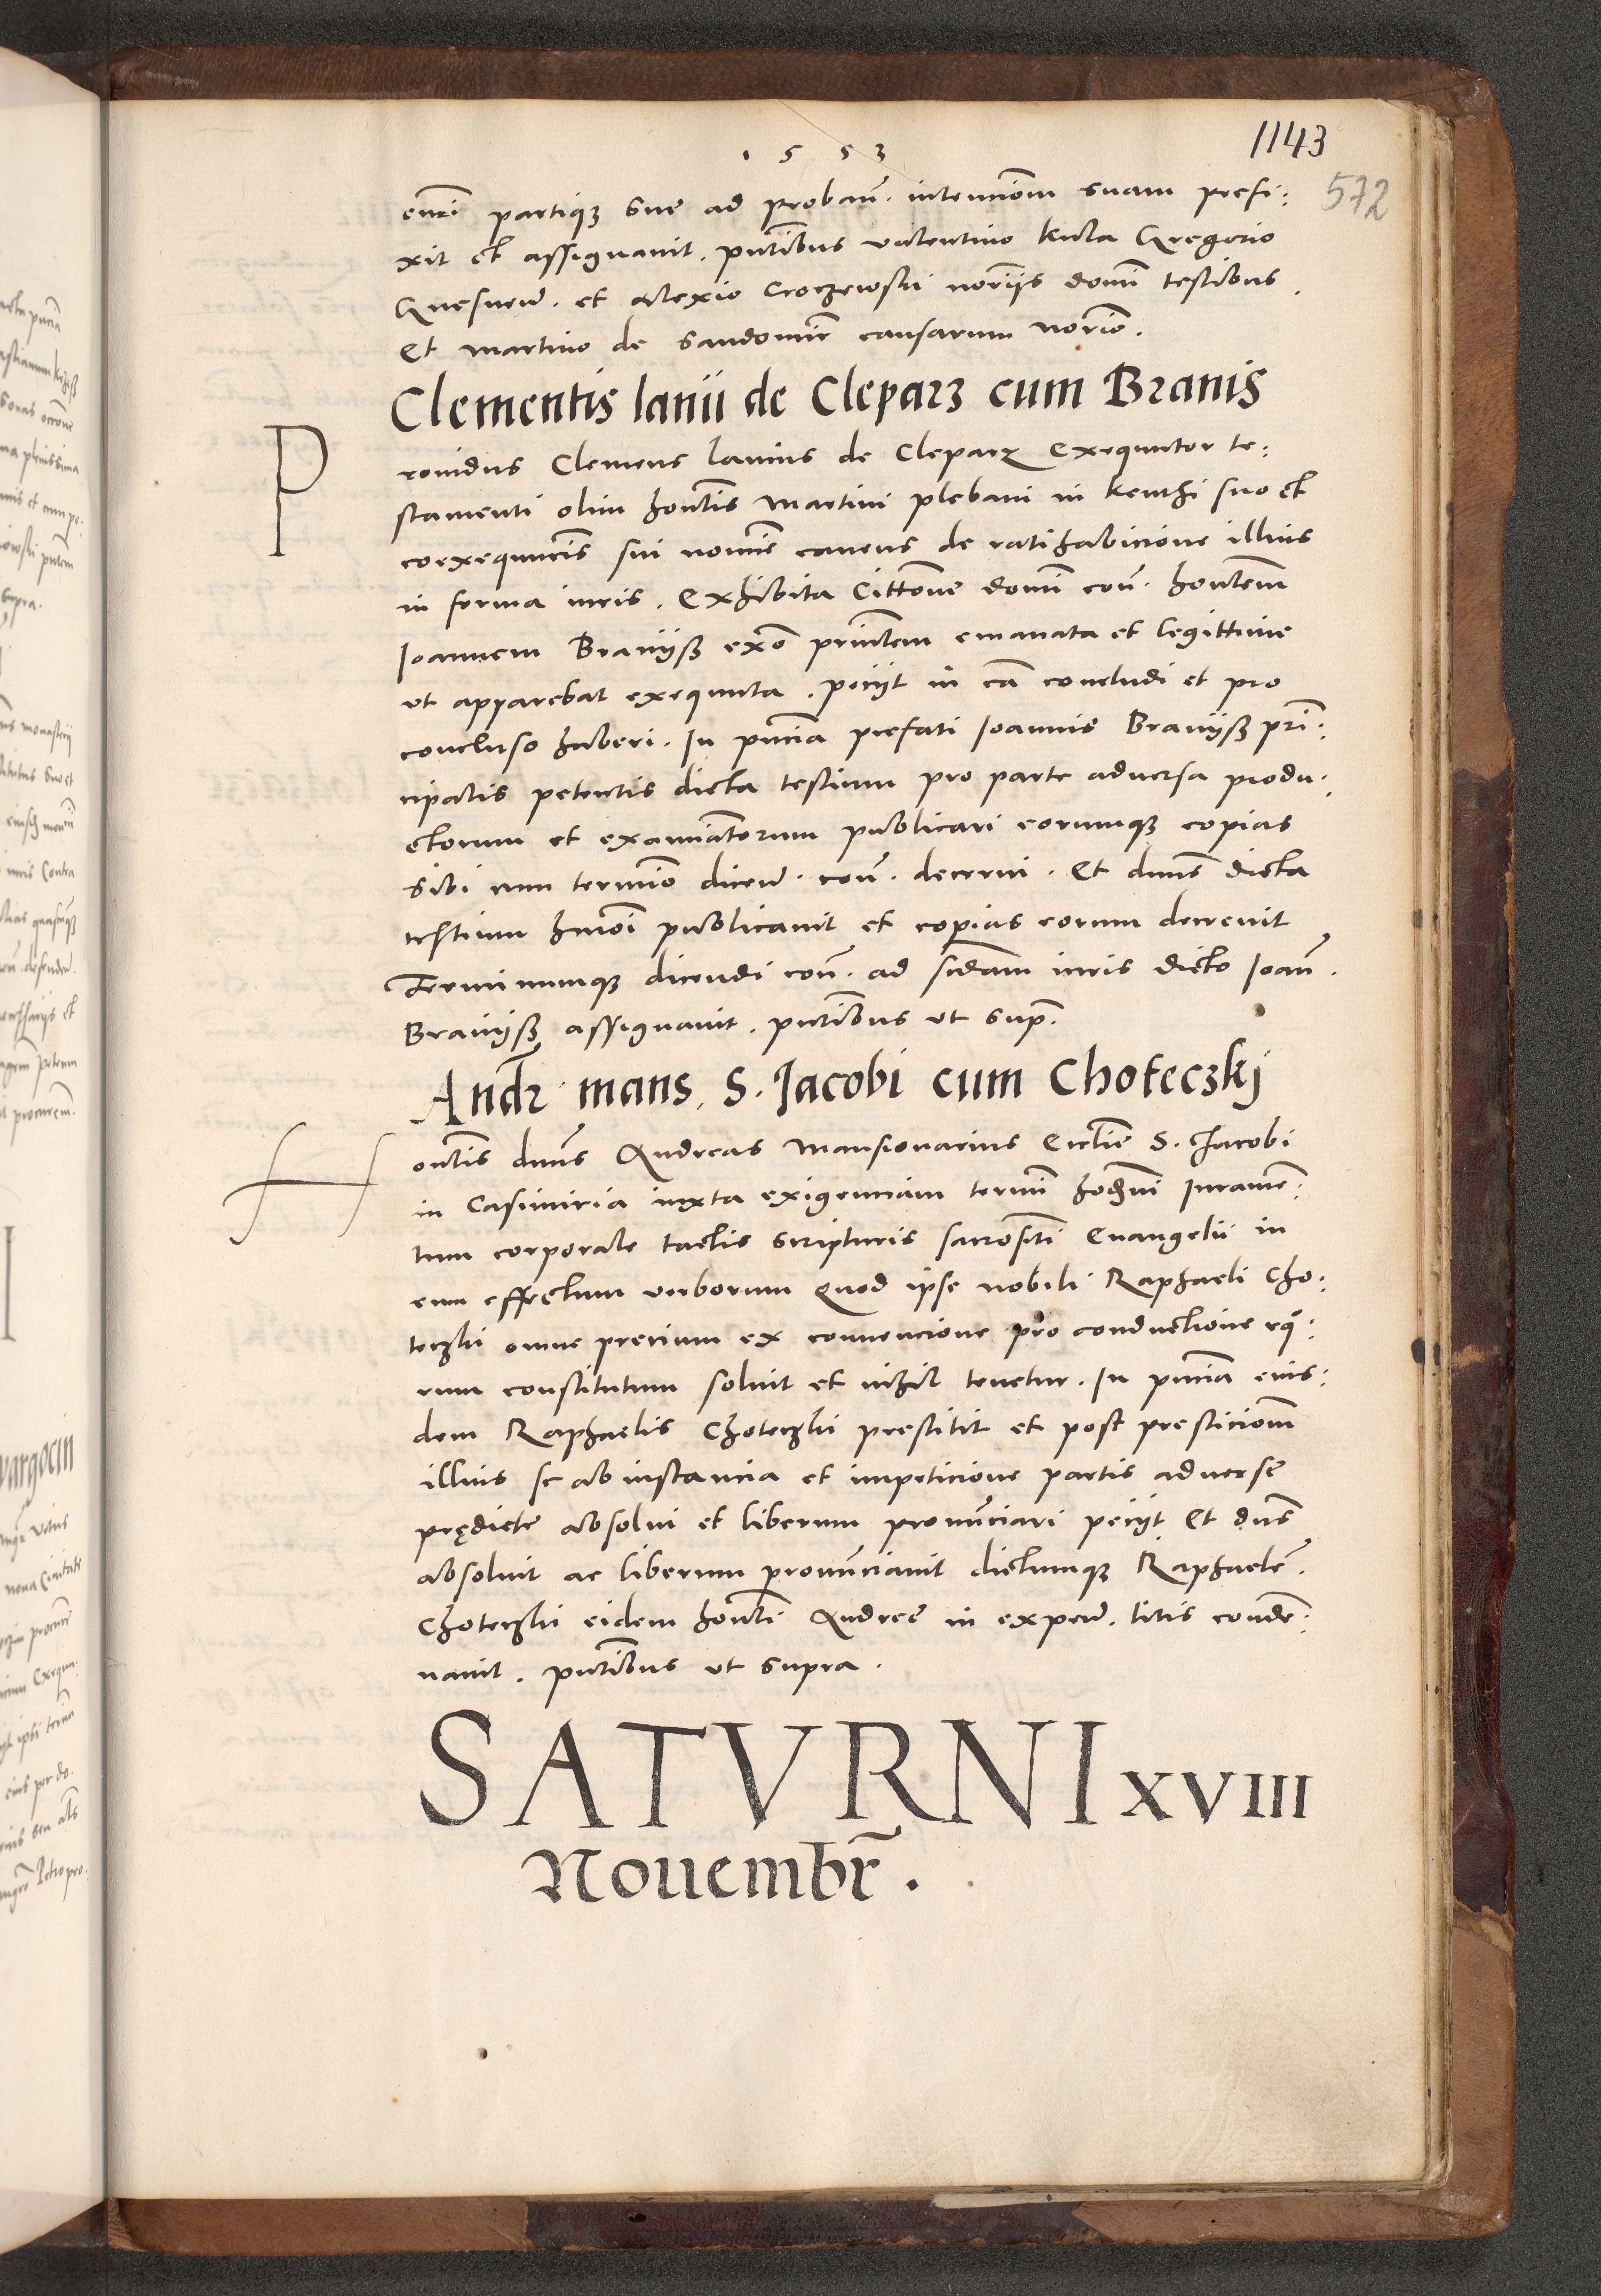 1553
1143
572
eiusdem partique sue ad proban̄. intencionem suam prefi:
xit et assignauit. pntibus valentino kula Gregorio
Gnesnen̄. et Alexio Croczewski notarijs domini testibus.
Et martino de Sandomir̄ causarum notario.
Clementis lanii de Clepar3 cum Branis
Prouidus Clemens lanius de Clepar3 Exequutor te:
stamenti olim hon̄tis Martini plebani in kenthi suo et
coexequutoris sui nomīe cauens de ratihabicione illius
in forma iuris. Exhibita Citt̄one domi con̄. hon̄tem
Ioannem Branijß ex̄o prin̄tem emanata et legittime
vt apparebat exequuta. pecijt in cā concludi et pro
concluso haberi. In pn̄cia prefati Ioannis Branijß prin̄:
cipalis petentis dicta testium pro parte aduersa produ:
ctorum et examīatorum publicari eorumque copias
sibi cum termīo dicen̄. con̄. decerni. Et dn̄us dicta
testium hm̄oi publicauit et copias eorum decreuit
Terminumque dicendi con̄. ad secdam iuris dicto Ioan̄.
Branijß assignauit. pn̄tibus vt sup̄.
Andr̄. mans. S. Jacobi cum Choteczkj
Hon̄tis dn̄us Andreas Mansionarius Eccl̄ie S. Iacobi
in Casimiria iuxta exigenciam termī hodierni Iuramen:
tum corporale tactis scripturis sacrosc̄ti Euangelii in
eum effectum verborum Quod ipse nobili Raphaeli Cho:
teczki omne precium ex conuencione pro conductione eq̄:
rum constitutum soluit et nihil tenetur. In pn̄cia eius:
dem Raphaelis Choteczki prestitit et post presticionem
illius se ab instancia et impeticione partis aduerse
prędicte absolui et liberum pronunciari pecijt Et dn̄us
absoluit ac liberum pronunciauit dictumque Raphaelē.
Choteczki eidem hon̄ti Andreę in expen̄. litis condē:
nauit. pn̄tibus vt supra.
SATVRNI XVIII
Nouembr̄.